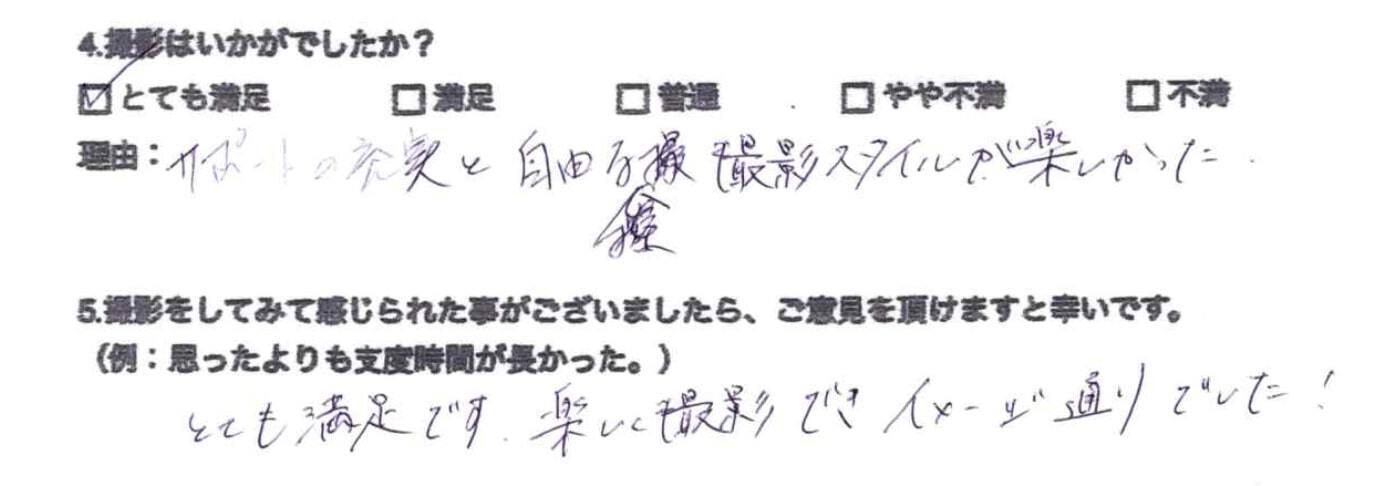 4.撮影はいかがでしたか？
☑とても満足 □満足 □普通 □やや不満 □不満
理由：サポートの充実と自由な撮影スタイルが楽しかった.
5.撮影をしてみて感じられた事がございましたら、ご意見を頂けますと幸いです。
（例：思ったよりも支度時間が長かった。）
とても満足です.楽しく撮影でき イメージ通りでした！